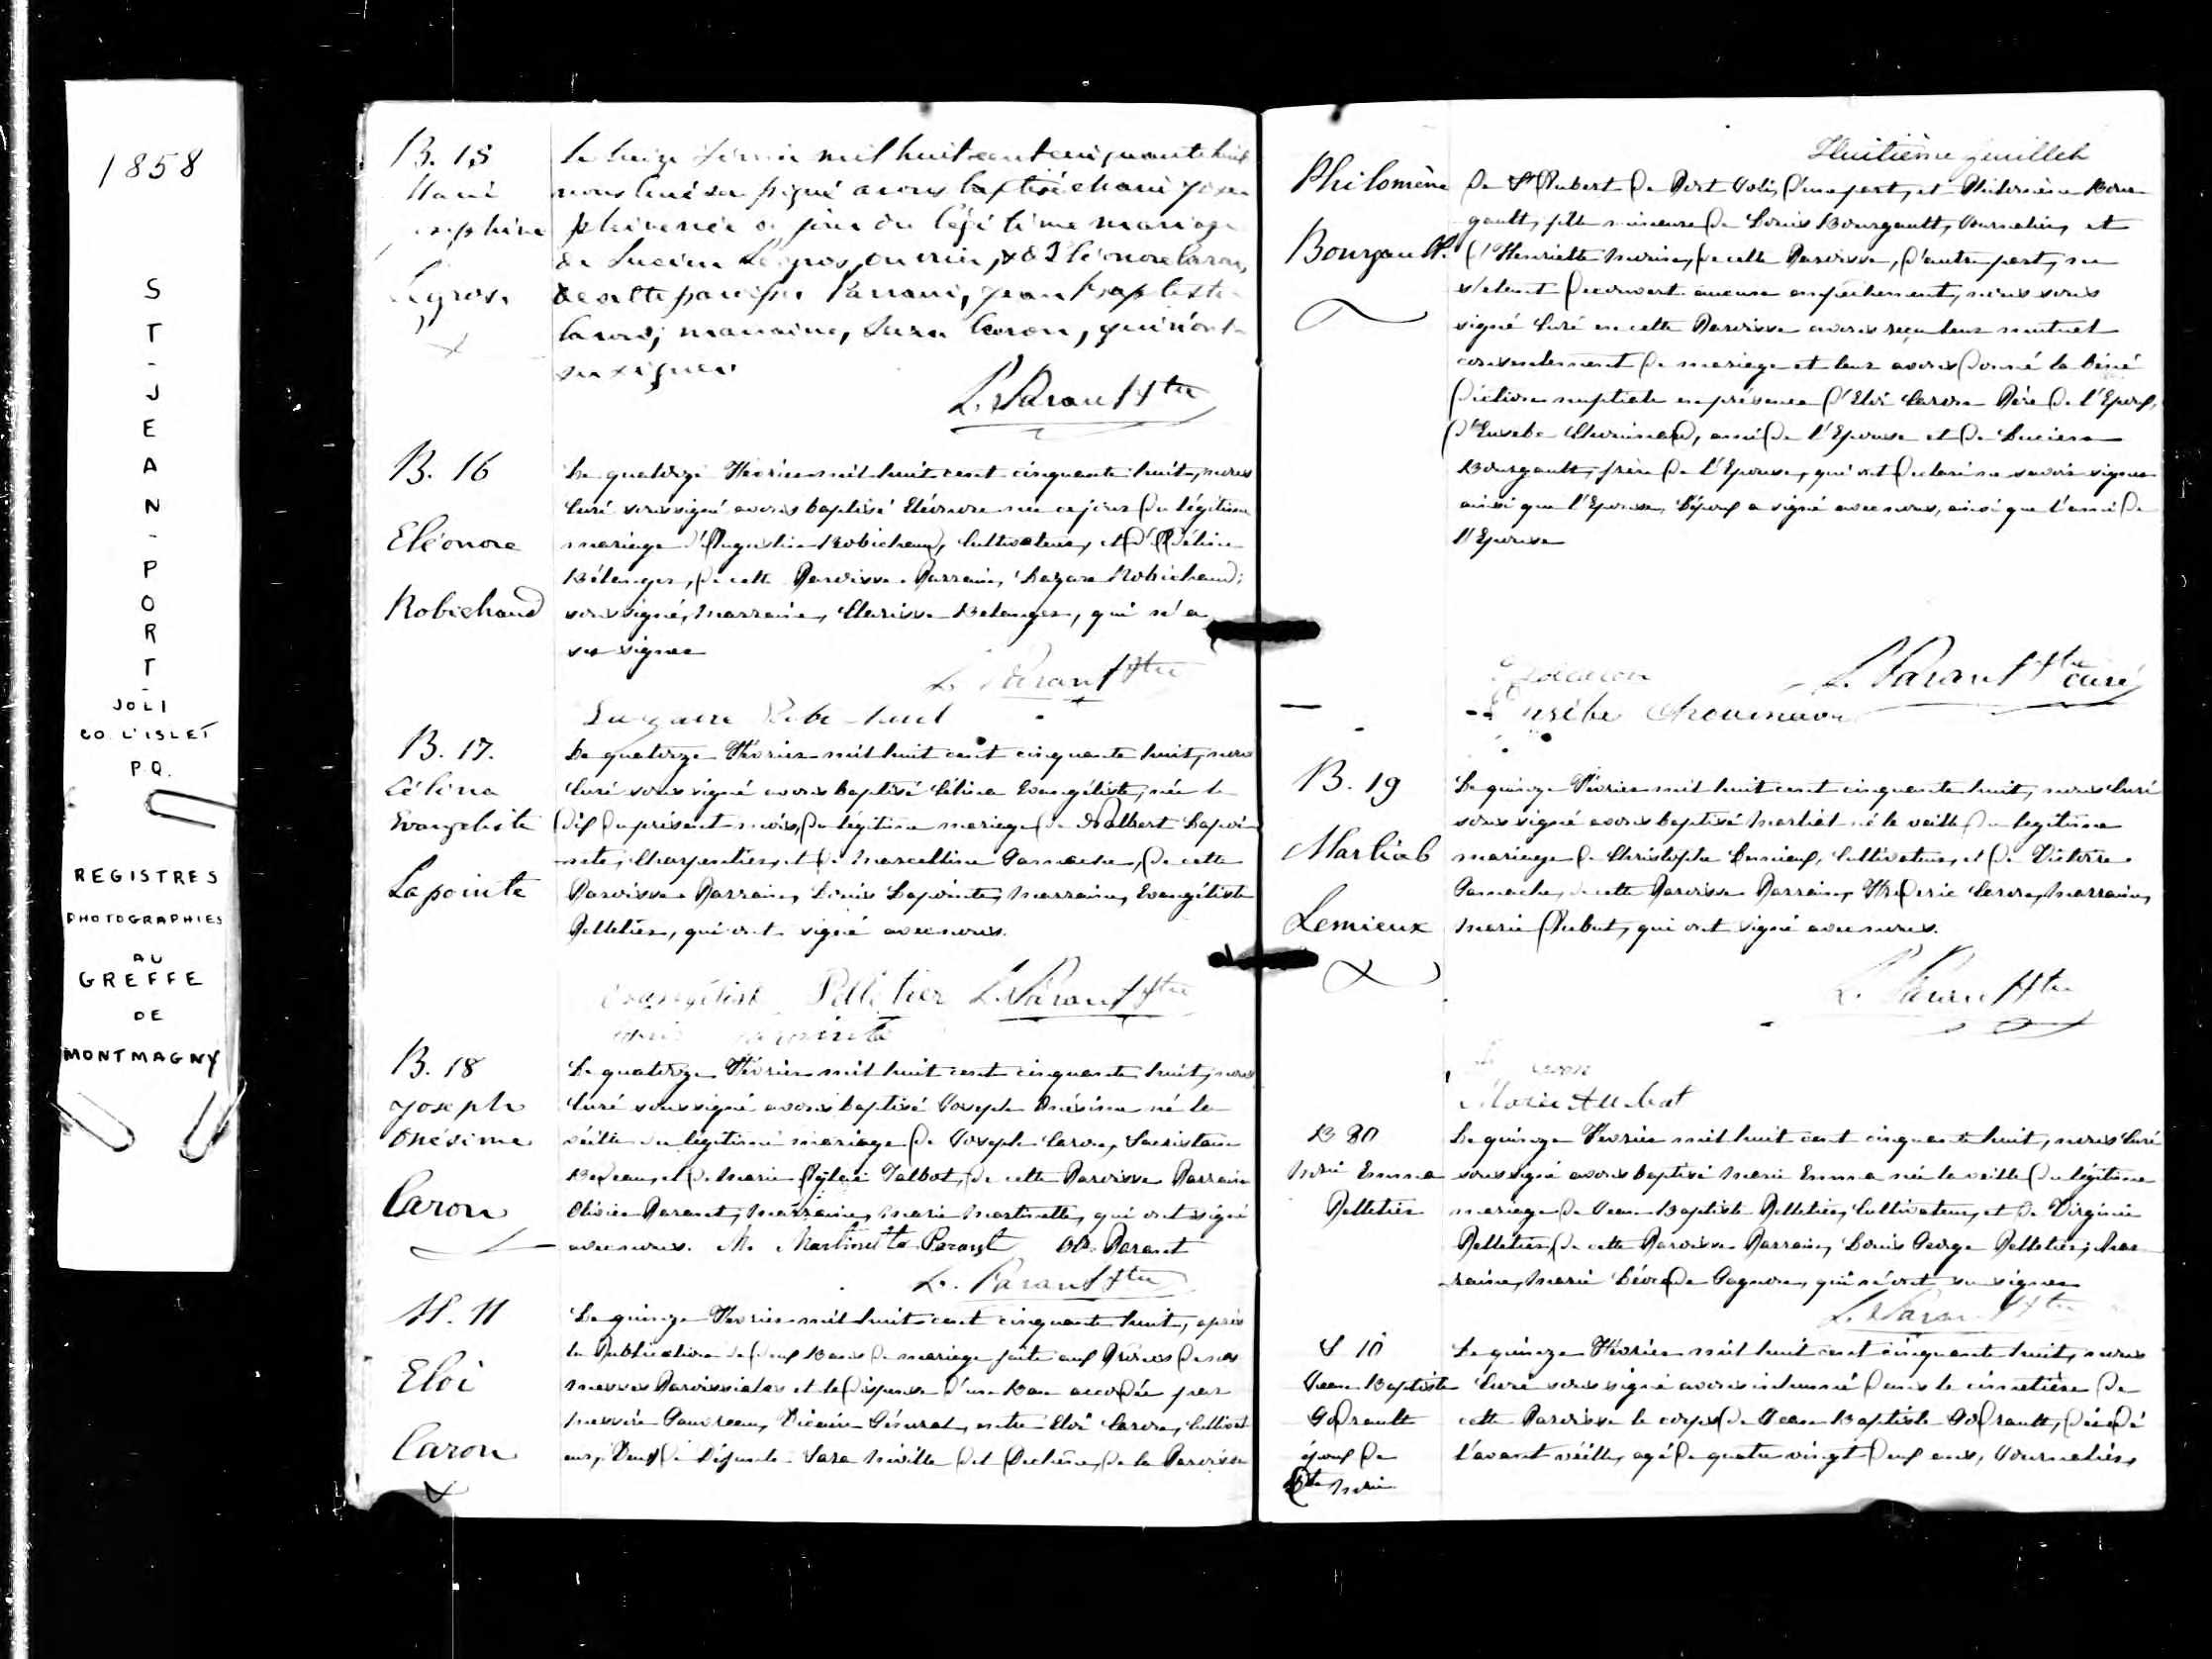 1858
ST-JEAN-PORT-
JOLI
CO. L'ISLET
P.Q.
REGISTRES
PHOTOGRAPHIES
AU
GREFFE
DE
MONTMAGNY
B. 15
Marie
Josephine
Legros
mil huit cent cinquante huit
nous Curé sousigné avons baptisé Marie Jose
phine née ce jour du légitime mariage
de Lucien Legros, et d'Eléonore Caron,
de cette paroisse Parrain, Jean Baptiste
Caron; marraine, Sara Caron, qui n'ont
su signer
L. Parant Ptre
B. 16
Eléonore
Robichaud
Le quatorze Février mil huit cent cinquante huit, nous
Curé soussigné avons baptisé Eléonore née ce jour du légitime
mariage d'Augustin Robichaud, Cultivateur, et d'Adéline
Bélanger, de cette Paroisse. Parrain, Lazare Robichaud;
soussigné, Marraine, Clarisse Belanger, qui n'a
su signer
L. Parant Ptre
B. 17.
Célina
Evangeliste
Lapointe
Le quatorze Février mil huit cent cinquante huit, nous
Curé soussigné avons baptisé Célina Evangéliste, née le
dix du présent mois, du légitime mariage de Dalbert Lapoi
nte, Charpentier, et de Marcelline Gamache, de cette
Paroisse Parrain, Louis Lapointe, Marraine, Evangéliste
Pelletier, qui ont signé avec nous.
Evangéliste Pelletier L. Parant Ptre
B. 18
Joseph
Onésime
Caron
Le quatorze Février mil huit cent cinquante huit, nous
Curé soussigné avons baptisé Joseph Onésime né la
veille du légitime mariage de Joseph Caron, Sacristain
Bedeau, et de Marie Aglaé Talbot, de cette Paroisse Parrain
Olivier Parant, Marraine, Marie Martinette, qui ont signé
avec nous. M. Martinette Parant Ol. Parant
L. Parant Ptre
M. 11
Eloi
Caron
Le quinze Février mil huit cent cinquante huit, après
la Publication de deux Bans de mariage faite aux Prônes de nos
messes Paroissiales et la dispense d'un Ban accordée par
Messire Gauvreau, Vicaire Général, entre Eloi Caron, Cultivat
eur, Veuf de défunte Sara Miville dit Dechêne, de la Paroisse
Huitième feuillet
Philomène
Bourgault.
de St Aubert de Port Joli, d'une part, et Philomène Bour
gault, fille mineure de Louis Bourgault, Journalier, et
d'Henriette Morin, de cette Paroisse, d'autre part, ne
s'étant découvert aucune empêchement, nous sous
signé Curé en cette Paroisse avons reçu leur mutuel
consentement de mariage et leur avons donné la béné
diction nuptiale en présence d'Eloi Caron Père de l'Epoux,
d'Eusebe Chouinard, ami de l'Epouse et de Lucien
Bourgault, frère de l'Epouse, qui ont déclaré ne savoir signer
ainsi que l'Epouse, L'époux a signé avec nous, ainsi que l'ami de
l'Epouse
L. Parant Ptre curé
Eusèbe Chouinard
B. 19
Martial
Lemieux
Le quinze Février mil huit cent cinquante huit, nous Curé
soussigné avons baptisé Martial né la veille du legitime
mariage de Christophe Lemieux, Cultivateur, et de Victoire
Gamache, de cette Paroisse Parrain, Fréderic Caron, Marraine,
Marie Aubut, qui ont signé avec nous.
L. Parant Ptre
Marie Aubut
B 20
Marie Emma
Pelletier
Le quinze Février mil huit cent cinquante huit, nous Curé
soussigné avons baptisé Marie Emma née la veille du légitime
mariage de Jean Baptiste Pelletier, Cultivateur, et de Virginie
Pelletier, de cette Paroisse Parrain, Louis George Pelletier; Mar
raine, Marie Gagnon, qui n'ont su signer
L. Parant Ptre
S 10
Jean Baptiste
Godrault
époux de
Morin
Le quinze Février mil huit cent cinquante huit, nous
Curé soussigné avons inhumé dans le cimetière de
cette Paroisse le corps de Jean Baptiste Godrault, décédé
l'avant veille, agé de quatre vingt deux ans, Journalier,